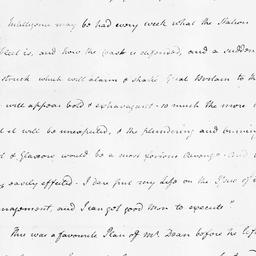 Intelligence may be had every week what the Station
is, and how the Coast is defended, and a sudden
struck which will alarm & shake Great Britain to the
will appear bold & extravagant. so much the more
it will be unexpected, & the plundering and burning
& Glasgow would be a most glorious Revenge. And
easily effected. I dare put my Life on the Issue of
management, and I can get good Men to execute"
This was a favourite Plan of Mr. Dean before he left